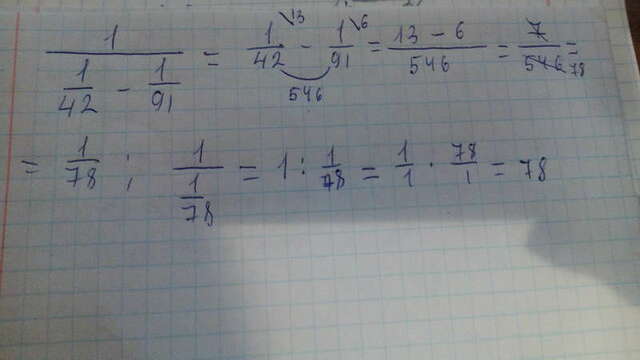 1/(1/42 - 1/91) = 1/42 \13 - 1/91 \6 = (13 - 6)/546 = 7/546 = 78
546
= 1/78 ; 1/(1/78) = 1 : 1/78 = 1/1 · 78/1 = 78